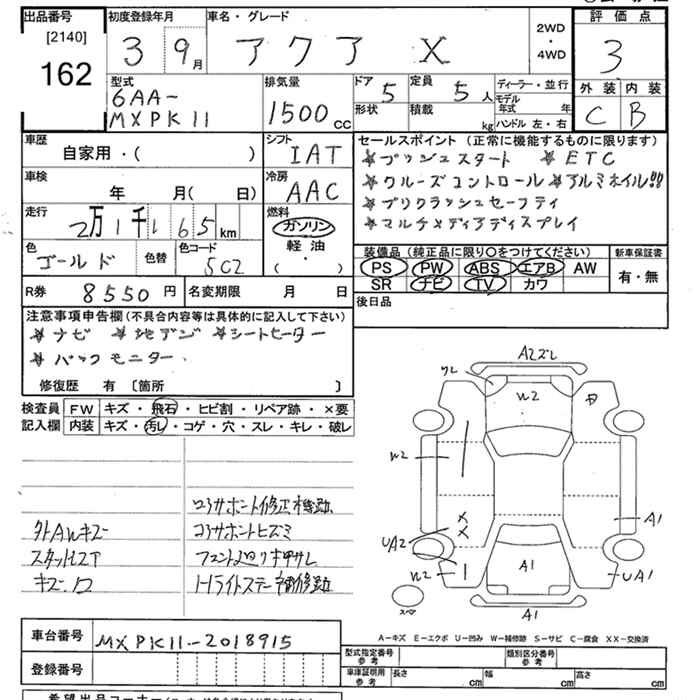 出品番号
[2140]
162
初度登録年月
3 9月
車名・グレード
アクア X
2WD
・
4WD
評価点
3
外装 内装
C B
型式
6AA-
MXPK11
排気量
1500cc
ドア
5
定員
5人
形状
積載
kg
ディーラー・並行
モデル年式 年
ハンドル 左・右
車歴
自家用・( )
シフト
IAT
車検
年 月( 日)
冷房
AAC
走行
2万1千165km
燃料
ガソリン
軽油
( )
色
ゴールド
色替
色コード
5C2
セールスポイント (正常に機能するものに限ります)
★プッシュスタート ★ETC
★クルーズコントロール ★アルミホイル!!
★プリクラッシュセーフティ
★マルチメディアディスプレイ
装備品 (純正品に限り〇をつけてください)
PS PW ABS エアB AW
SR ナビ TV カワ
新車保証書
有・無
後日品
R券 8550円
名変期限 月 日
注意事項申告欄 (不具合内容等は具体的に記入して下さい)
★ナビ ★地デジ ★シートヒーター
★バックモニター
修復歴 有 〔箇所 〕
検査員
記入欄
FW キズ・飛石・ヒビ割・リペア跡・×要
内装 キズ・汚レ・コゲ・穴・スレ・キレ・破レ
コアサポート修正機跡
外AWキズ
コアサポートヒズミ
スタッドレスT
キズ・ロ
Hライトステー補修跡
A2ズレ
W2
W2
A1
UA2
W2
A1
UA1
A1
スペア
A-キズ E-エクボ U-凹み W-補修跡 S-サビ C-腐食 XX-交換済
車台番号
MXPK11-2018915
登録番号
型式指定番号
参考
類別区分番号
参考
車庫証明用
参考
長さ cm
幅 cm
高さ cm